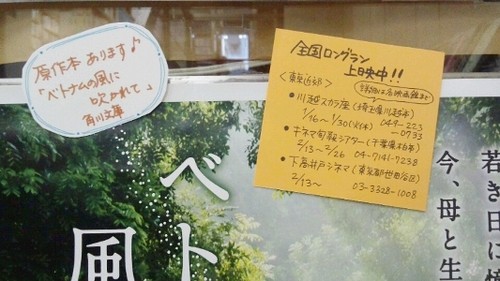 原作本 あります♪
「ベトナムの風に
吹かれて」
角川文庫
全国ロングラン
上映中!!
詳細は各映画館まで
<東京近郊>
●川越スカラ座(埼玉県川越市)
1/16〜1/30(火休) 049-223
-0733
●キネマ旬報シアター(千葉県柏市)
2/13〜2/26 04-7141-7238
●下高井戸シネマ(東京都世田谷区)
2/13〜 03-3328-1008
ベト
風
若き日に
今、母と生